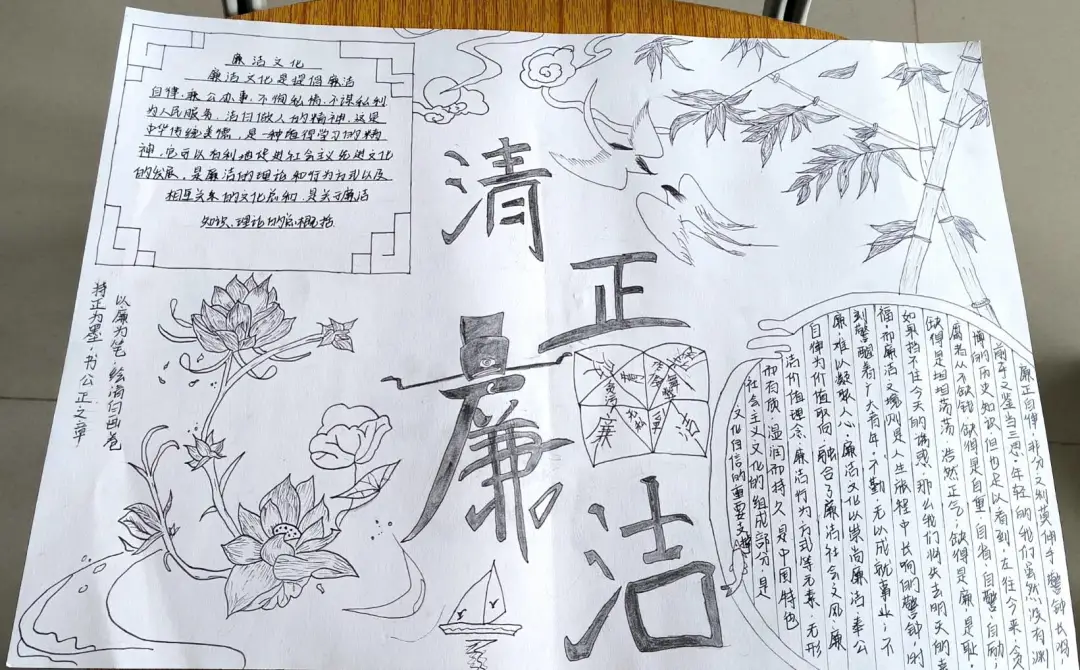 廉洁文化
廉洁文化是提倡廉洁
自律,秉公办事,不徇私情,不谋私利
为人民服务,洁白做人的精神,这是
中华传统美德,是一种值得学习的精
神,它可以有利地促进社会主义先进文化
的发展,是廉洁的理论和行为方式以及
相互关系的文化总和,是关于廉洁
知识、理论的总概括
清
正
廉
洁
以廉为笔,绘清白画卷
持正为墨,书公正之章
廉
洁
廉正自律非分之利莫伸手警钟长鸣,
前车之鉴当三思,年轻的我们虽然没有渊
博的历史知识但也足以看到,古往今来,贪
腐者从不缺错,缺得是自重、自省、自警、自励
缺得是坦坦荡荡,浩然正气,缺得是廉,是耻
如果挡不住今天的诱惑,那么我们将失去明天的幸
福,而廉洁文魂则是人生旅程中长响的警钟,时
刻警醒着广大青年,不勤无以成就事业,不
廉难以凝聚人心,廉洁文化以崇尚廉洁奉公
自律为价值取向,融合了廉洁社会文风,廉
洁价值理念,廉洁行为方式等元素,无形
而有质,湿润而持久,是中国特色
社会主义文化的组成部分,是
文化自信的重要支撑